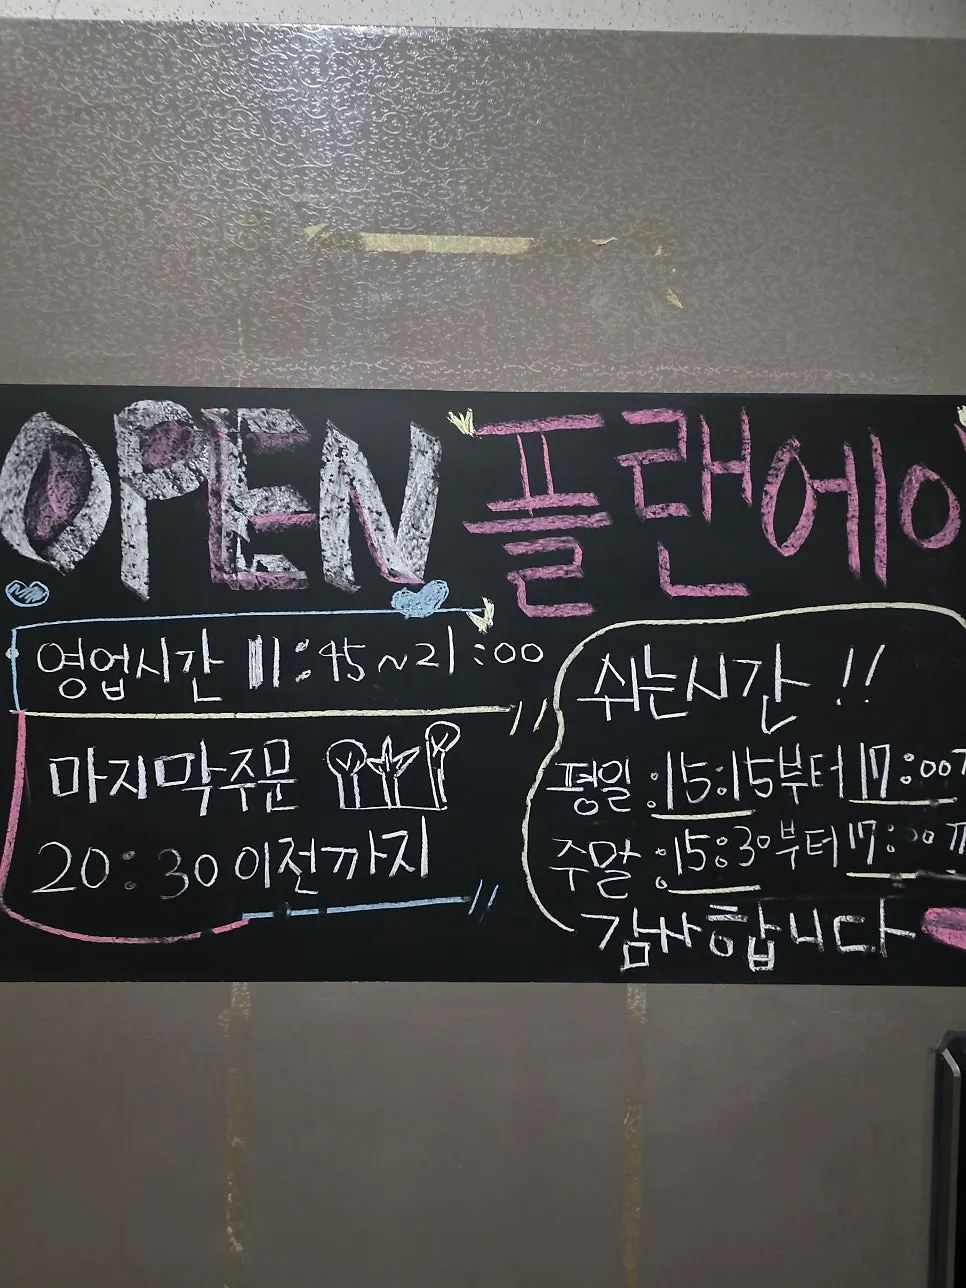 OPEN 플랜에이
영업시간 11:45~21:00
마지막주문
20:30 이전까지
쉬는시간 !!
평일:15:15부터 17:00
주말:15:30부터 17:00
감사합니다